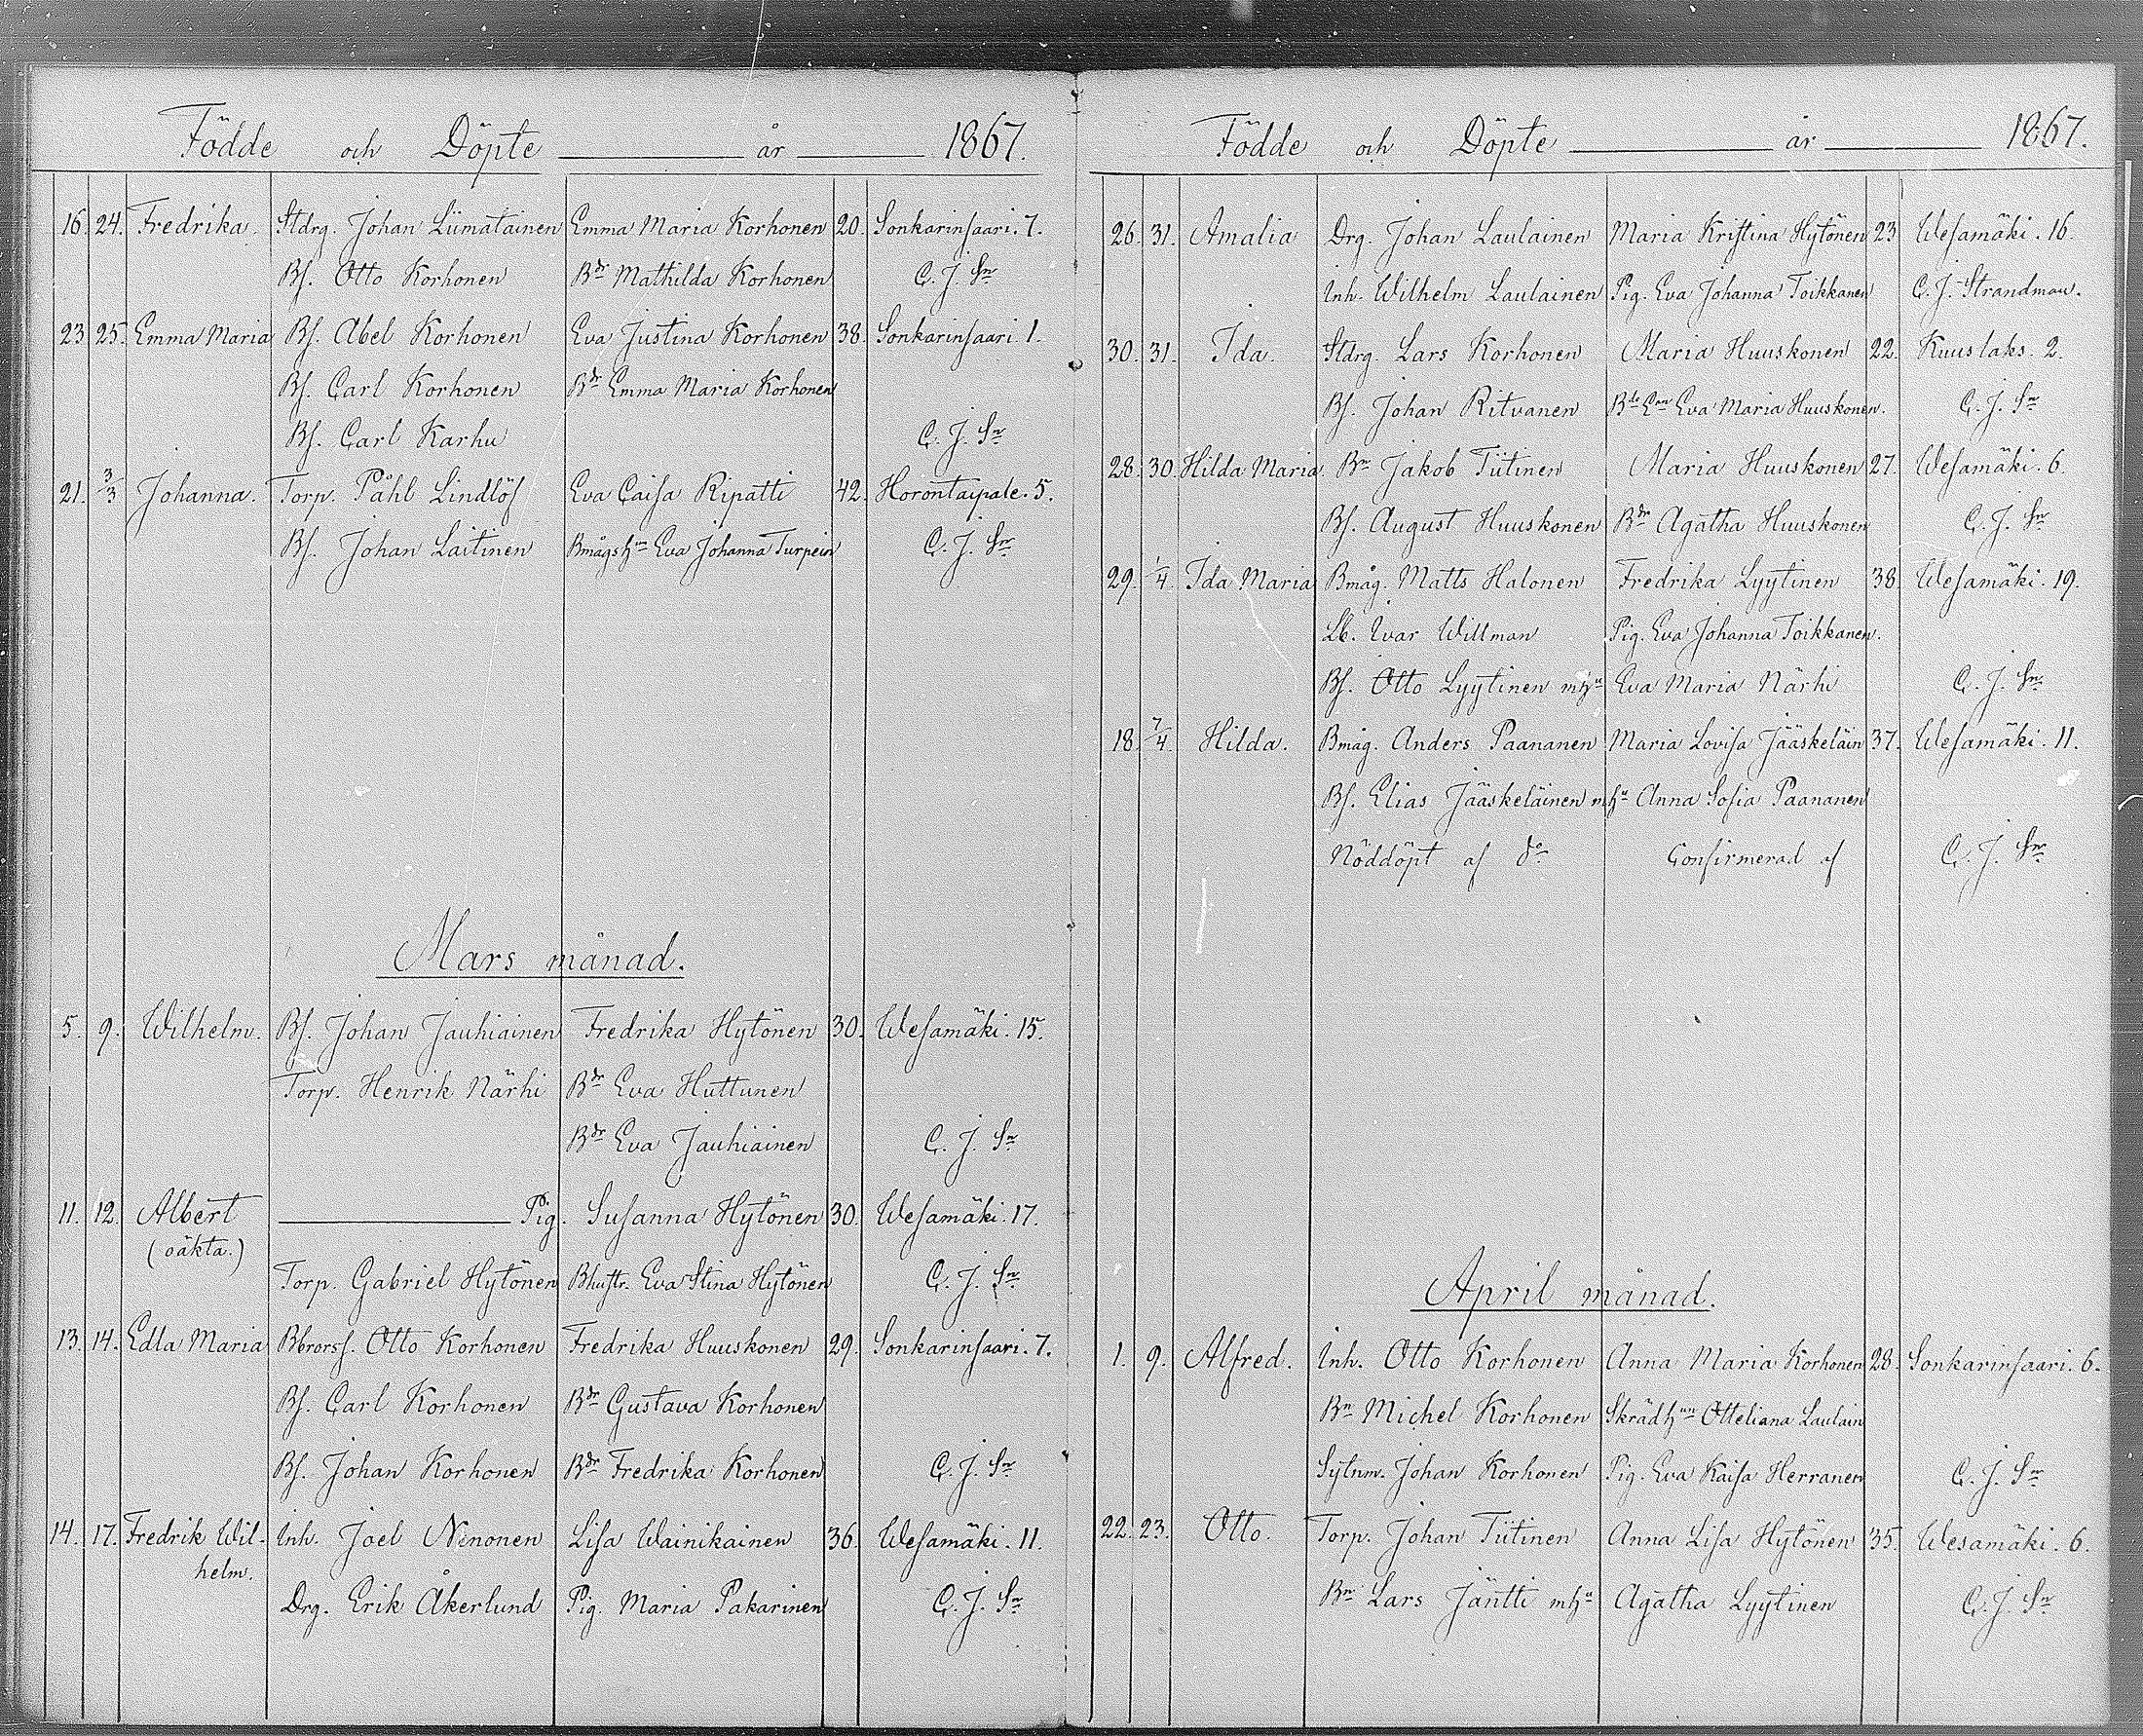 Födde och Döpte år 1867.
16. 24. Fredrika. Stdrg. Johan Liimatainen Emma Maria Korhonen 20. Sonkarinsaari. 7.
Bs. Otto Korhonen Bdr Mathilda Korhonen C. J. Sn
23 25. Emma Maria Bs. Abel Korhonen Eva Justina Korhonen 38. Sonkarinsaari. 1.
Bs. Carl Korhonen Bdr Emma Maria Korhonen
Bs. Carl Karhu C. J. Sn
21. 3/3 Johanna. Torp. Påhl Lindlöf Eva Caisa Ripatti 42. Horontaipale. 5.
Bs. Johan Laitinen Bmågshun Eva Johanna Turpein C. J. Sn
Mars månad.
5. 9. Wilhelm. Bs. Johan Jauhiainen Fredrika Hytönen 30. Wesamäki. 15.
Torp. Henrik Närhi Bdr Eva Huttunen
Bdr Eva Jauhiainen C. J. Sn
11. 12. Albert Pig. Susanna Hytönen 30. Wesamäki. 17.
(oäkta.)
Torp. Gabriel Hytönen Bhustr. Eva Stina Hytönen C. J. Sn
13. 14. Edla Maria Bbrorss. Otto Korhonen Fredrika Huuskonen 29. Sonkarinsaari. 7.
Bs. Carl Korhonen Bdr Gustava Korhonen
Bs. Johan Korhonen Bdr Fredrika Korhonen C. J. Sn
14. 17. Fredrik Wil- Inh. Joel Ninonen Lisa Wainikainen 36. Wesamäki. 11.
helm.
Drg. Erik Åkerlund Pig. Maria Pakarinen C. J. Sn
Födde och Döpte år 1867.
26. 31. Amalia Drg. Johan Laulainen Maria Kristina Hytönen 23 Wesamäki. 16.
Inh. Wilhelm Laulainen Pig. Eva Johanna Toikkanen C. J. Strandman.
30. 31. Ida. Stdrg. Lars Korhonen Maria Huuskonen 22. Kuuslaks. 2.
Bs. Johan Ritvanen Eva Maria Huuskonen. C. J. Sn
28. 30. Hilda Maria. Bn Jakob Tiitinen Maria Huuskonen 27. Wesamäki. 6.
Bs. August Huuskonen Bdr Agatha Huuskonen C. J. Sn
29. 1/4. Ida Maria Bmåg. Matts Halonen Fredrika Lyytinen 38. Wesamäki. 19.
Lb. Ivar Willman Pig. Eva Johanna Toikkanen.
Bs. Otto Lyytinen mhu Eva Maria Närhi C. J. Sn
18. 7/4. Hilda. Bmåg. Anders Paananen Maria Lovisa Jääskeläin 37. Wesamäki. 11.
Bs. Elias Jääskeläinen mhu Anna Sofia Paananen
Nöddöpt af do Confirmerad af C. J. Sn
April månad.
1. 9. Alfred. Inh. Otto Korhonen Anna Maria Korhonen 28. Sonkarinsaari. 6.
Bn Michel Korhonen Skrädhun Otteliana Laulain
Sytnm. Johan Korhonen Pig. Eva Kaisa Herranen C. J. Sn
22. 23. Otto. Torp. Johan Tiitinen Anna Lisa Hytönen 35. Wesamäki. 6.
Bn Lars Jäntti mhu Agatha Lyytinen C. J. Sn